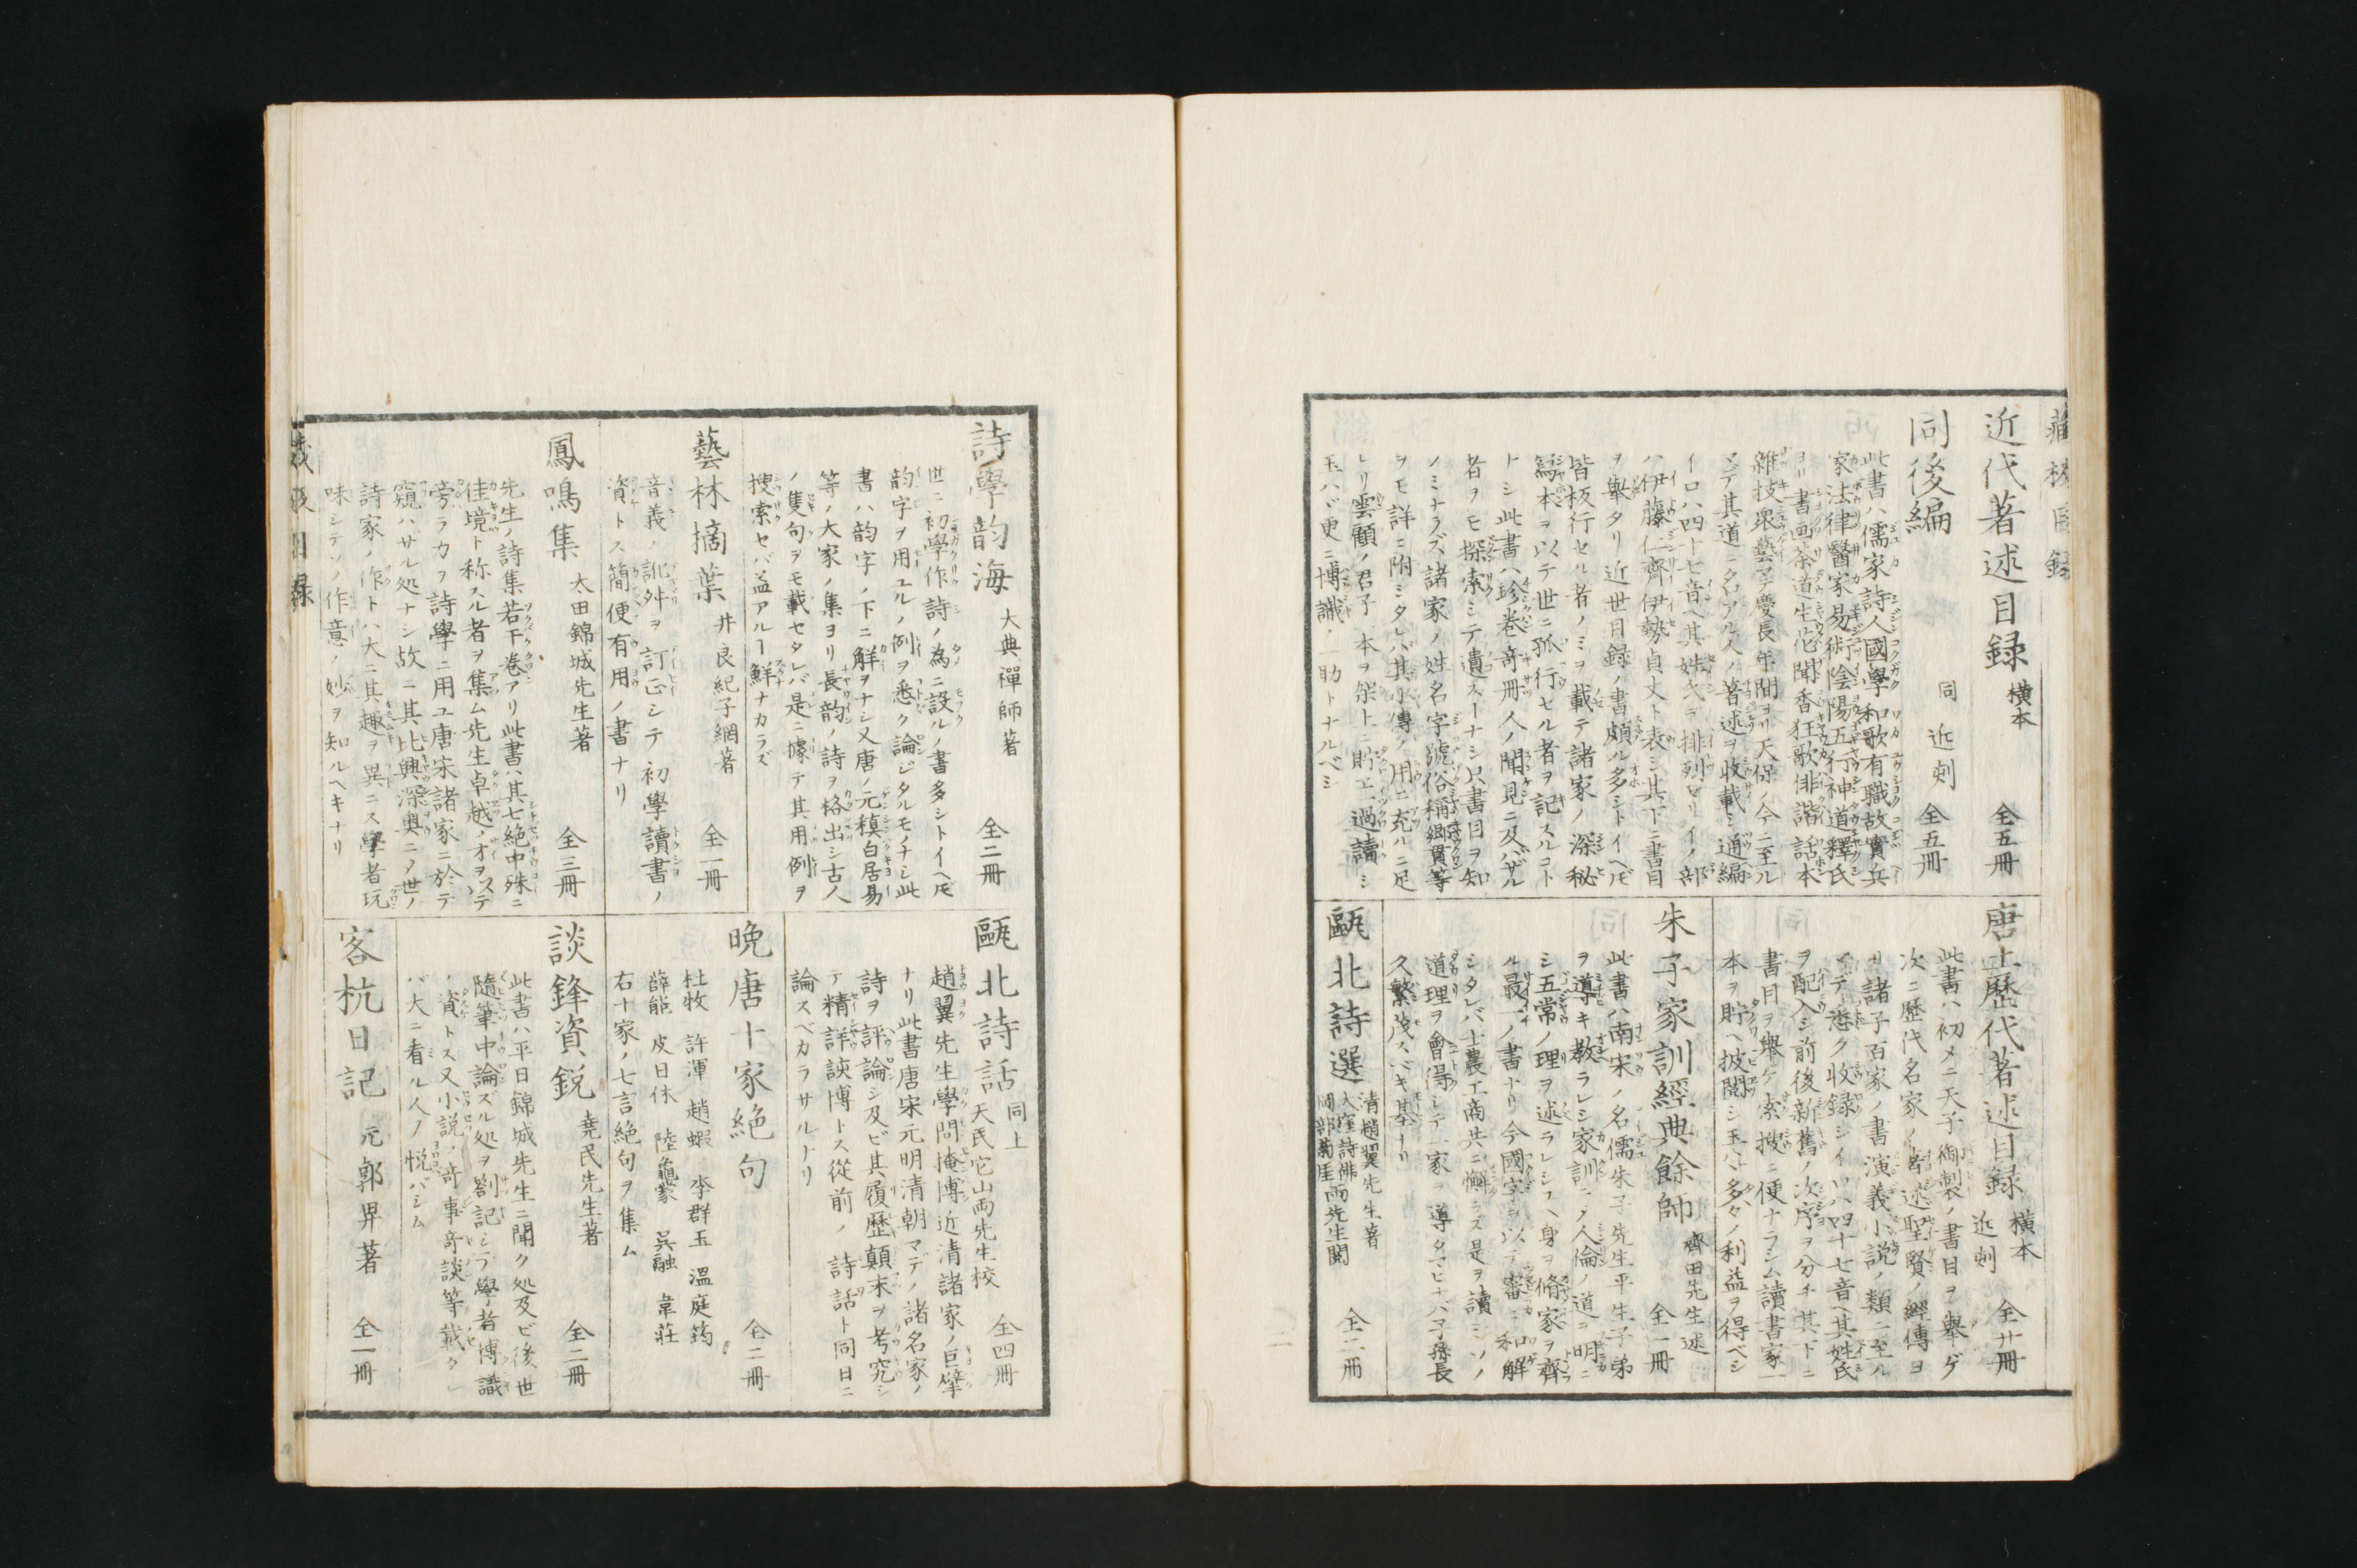 近代著述目録 横本 全五冊
同後編 同 近刻 全五冊
此書ハ儒家詩人國學和歌有職故實兵
家法律醫家易術陰陽五行神道釋氏
ヨリ書画茶道生花聞香狂歌俳諧話本
雜技衆藝マデ慶長年間ヨリ天保ノ今ニ至ル
マデ其道ニ名アル人ノ著述ヲ收載シ通編
イロハ四十七音ヘ其姓氏ヲ排列セリイノ部
ハ伊藤仁齋伊勢貞丈ト表シ其下ニ書目
ヲ擧タリ近世目録ノ書頗ル多シトイヘ𪜈
皆板行セル者ノミヲ載テ諸家ノ深秘
寫本ヲ以テ世ニ孤行セル者ヲ記スルコト
トシ此書ハ珍巻奇冊人ノ聞見ニ及バザル
者ヲモ探索シテ遺スヿナシ只書目ヲ知
ノミナラズ諸家ノ姓名字號俗稱郷貫等
ヲモ詳ニ附シタレバ其小傳ノ用ニ充ルニ足
レリ雲顧ノ君子一本ヲ架上ニ貯エ過讀シ
玉ハヾ更ニ博識ノ一助トナルベシ
唐土歴代著述目録 横本 近刻 全廿冊
此書ハ初メニ天子御製ノ書目ヲ擧ゲ
次ニ歴代名家ノ著述聖賢ノ經傳ヨ
リ諸子百家ノ書演義小説ノ類ニ至ル
マデ悉ク收録シイロハ四十七音ヘ其姓氏
ヲ配入シ前後新舊ノ次序ヲ分チ其下ニ
書目ヲ擧ケ索搜ニ便ナラシム讀書家一
本ヲ貯ヘ披閲シ玉ハヾ多クノ利益ヲ得ベシ
朱子家訓經典餘師 齋田先生述 全一冊
此書ハ南宋ノ名儒朱子先生平生子弟
ヲ導キ教ラレシ家訓ニメ人倫ノ道ヲ明ニ
シ五常ノ理ヲ述ラレシユヘ身ヲ脩家ヲ齊
ル最一ノ書ナリ今國字ヲ以テ審ニ和解
シタレバ士農工商共ニ懈ラズ是ヲ讀ミソノ
道理ヲ會得シテ一家ヲ導タマヒナバ子孫長
久繁茂スベキ基ナリ
甌北詩選 清趙翼先生著 大窪詩佛 岡部菊厓 両先生閲 全二冊
詩學韵海 大典禪師著 全二冊
世ニ初學作詩ノ為ニ設ルノ書多シトイヘ𪜈
韵字ヲ用ユルノ例ヲ悉ク論ジタルモノナシ此
書ハ韵字ノ下ニ解ヲナシ又唐ノ元稹白居易
等ノ大家ノ集ヨリ長韵ノ詩ヲ格出シ古人
ノ隻句ヲモ載セタレバ是ニ據テ其用例ヲ
搜索セバ益アルヿ鮮ナカラズ
藝林摘葉 井良紀子網著 全一冊
音義ノ訛舛ヲ訂正シテ初學讀書ノ
資トス簡便有用ノ書ナリ
鳳鳴集 太田錦城先生著 全三冊
先生ノ詩集若干巻アリ此書ハ其七絶中殊ニ
佳境ト称スル者ヲ集ム先生卓越ノオヲ以テ
旁ラカヲ詩學ニ用ユ唐宋諸家ニ於テ
窺ハサル処ナシ故ニ其比興深奥ニノ世ノ
詩家ノ作トハ大ニ其趣ヲ異ニス學者玩
味シテソノ作意ノ妙ヲ知ルヘキナリ
甌北詩話 同上 天民它山両先生校 全四冊
趙翼先生學問掩博近清諸家ノ巨擘
ナリ此書唐宋元明清朝マデノ諸名家ノ
詩ヲ評論シ及ビ其履歴顛末ヲ考究シ
テ精詳該博トス從前ノ詩話ト同日ニ
論スベカラサルナリ
晩唐十家絶句 全二冊
杜牧 許渾 趙嘏 李群玉 溫庭筠
薛能 皮日休 陸龜蒙 吳融 韋莊
右十家ノ七言絶句ヲ集ム
談鋒資鋭 堯民先生著 全二冊
此書ハ平日錦城先生ニ聞ク処及ビ後世
隨筆中論ズル処ヲ劄記シテ學者博識
ノ資トス又小説ノ奇事奇談等載タレ
バ大ニ看ル人ノ悦バシム
客杭日記 元郭畀著 全一冊